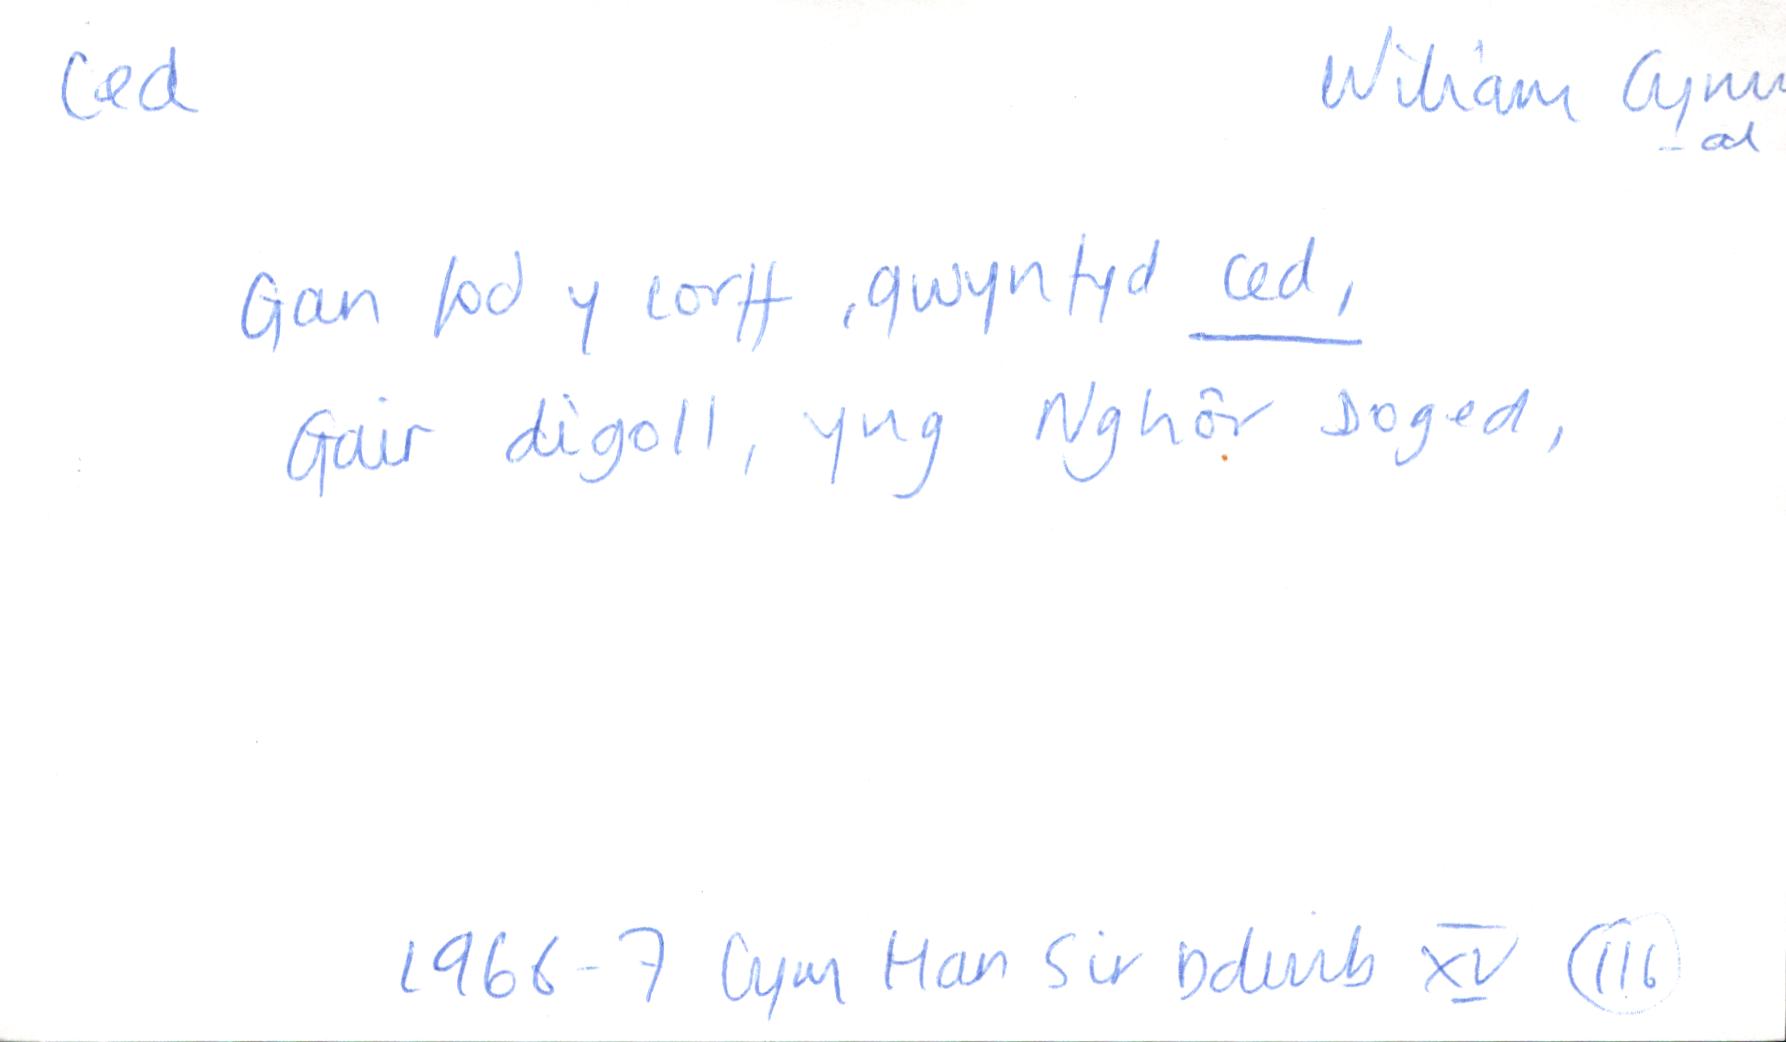 Ced
Wiliam Cynw
- al
Gan fod y corff, gwyntyd ced,
Gair digoll, yng Nghôr Doged,
1966-7 Cym Han Sir Ddinb XV 116